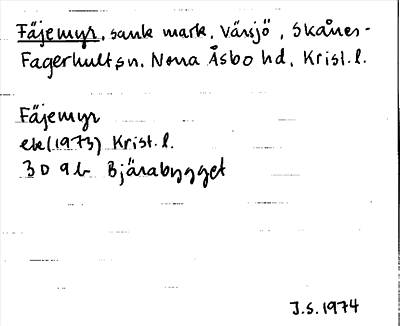 Fäjemyr, sank mark, Värsjö, Skånes-
Fagerhults sn, Norra Åsbo hd, Krist. l.
Fäjemyr
ek (1973) Krist. l.
3 D 9 b Bjärabygget
J.S. 1974